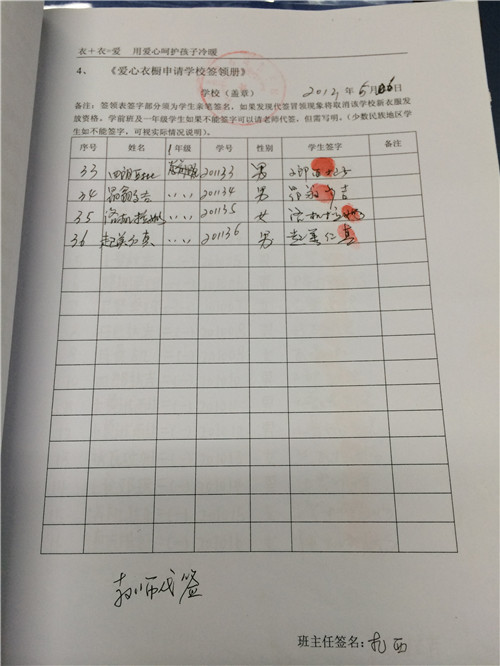 衣+衣=爱 用爱心呵护孩子冷暖
4、 《爱心衣橱申请学校签领册》
学校（盖章） 2012年5月06日
备注：签领表签字部分须为学生亲笔签名，如果发现代签冒领现象将取消该学校新衣服发
放资格。学前班及一年级学生如果不能签字可以请老师代签，但需写明。（少数民族地区学
生如不能签字，可视实际情况说明）。
序号 姓名 年级 学号 性别 学生签字 备注
33 201133 男
34 201134 男
35 201135 女
36 201136 男
教师代签
班主任签名：扎西